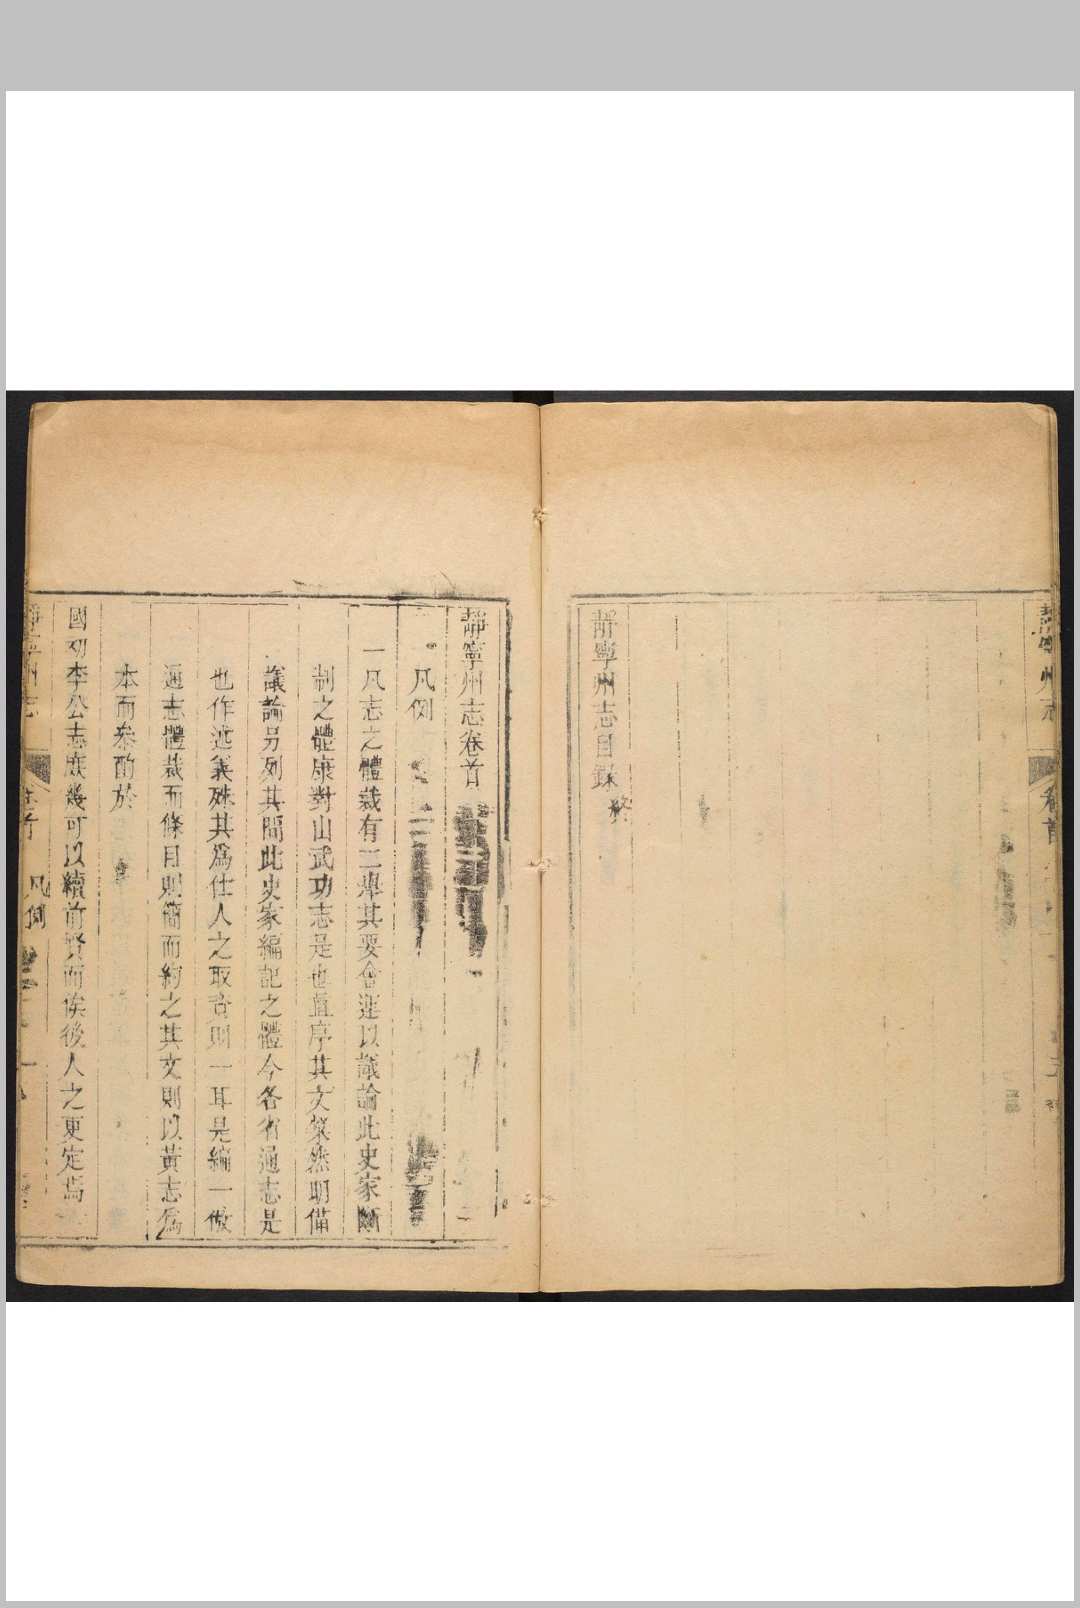 靜寧州志
卷首
靜寧州志目錄終
靜寧州志卷首
凡例
一凡志之體裁有二舉其要會運以議論此史家斷
制之體康對山武功志是也直序其文粲然明備
議論另列其間此史家編記之體今各省通志是
也作述義殊其爲仕人之取資則一耳是編一倣
通志體裁而條目則簡而約之其文則以黃志爲
本而叅酌於
國初李公志庶幾可以續前賢而俟後人之更定焉
靜寧州志
卷首
凡例